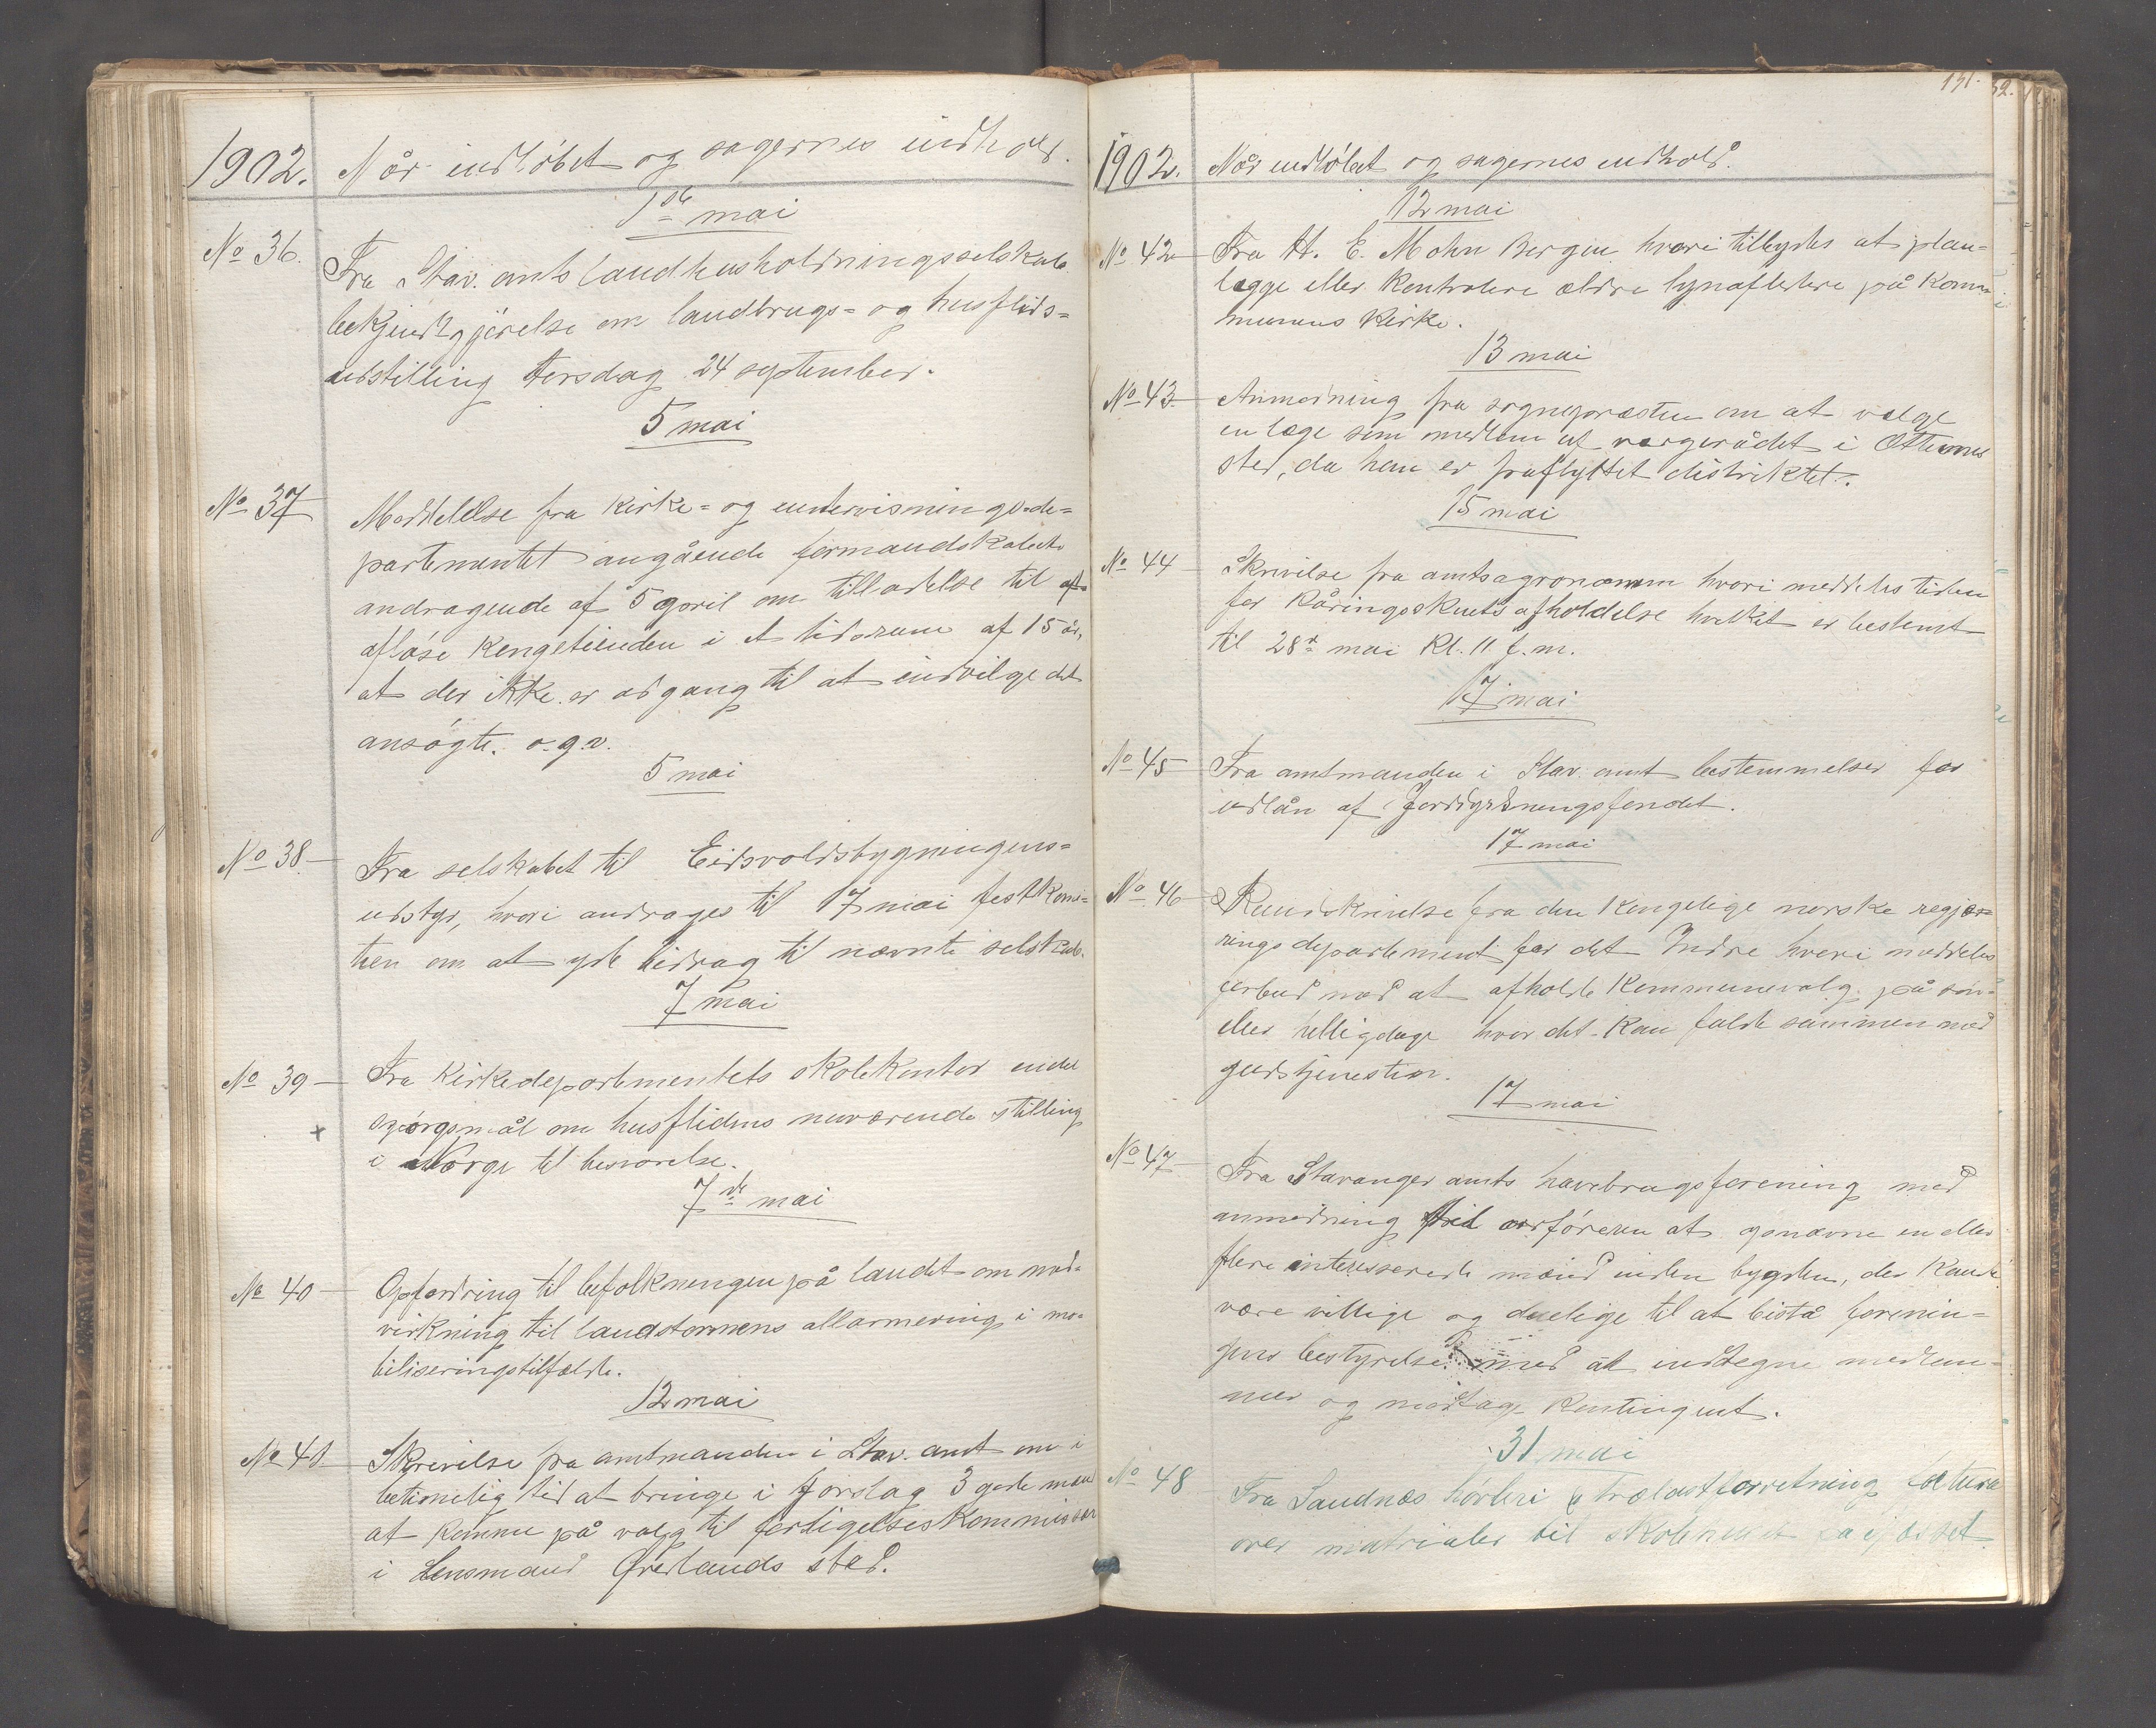 1902. Når indløbet og sagernes indhold.
1ste mai
No 36. Fra Stav. amts landhusholdningsselskab
bekjendtgjørelse om landbrugs= og husflids=
udstilling torsdag 24 september.
5 mai
No 37 Meddelelse fra kirke= og undervisnings-de=
partementet angående formandskabets
andragende af 5 april om tilladelse til
afløse Kongetienden i et tidsrum af 15 år,
at der ikke er adgang til at indvilge det
ansøgte. o.g.v.
5 mai
No 38. Fra selskabet til Eidsvoldsbygningens=
udstyr, hvori andrages til 17 mai festkomi=
teen om at yde bidrag til nævnte selskab.
7 mai
No 39 Fra Kirkedepartementets skolekontor endel
spørgsmål om husflidens nuværende stilling
i Norge til besvarelse.
7de mai
No 40 Opfordring til befolkningen på landet om med=
virkning til landstormens allarmering i mo=
biliseringstilfælde.
12 mai
No 41 Skrivelse fra amtmanden i Stav. amt om i
betimelig tid at bringe i forslag 3 gode mænd
at komme på valg til forligelseskommissær
i Lensmand stad.
131.
1902. Når indløbet og sagernes indhold.
12 mai
No 42 Fra H. E. Mohn Bergen hvori tilbydes at plan=
lægge eller kontrolere ældre lynafledere på Kom=
munens Kirke.
13 mai
No 43 Anmodning fra sognepræsten om at vælge
en læge som medlem af værgerådet i
sted, da han er fraflyttet distriktet.
15 mai
No 44 Skrivelse fra amtsagronomen hvori meddeles tiden
for Kåringsskuets afholdelse hvilket er bestemt
til 28de mai Kl. 11 f.m.
17 mai
No 45 Fra amtmanden i Stav. amt bestemmelser for
udlån af Jorddyrkningsfondet.
17 mai
No 46 Rundskrivelse fra den Kongelige norske regjæ=
ringsdepartement for det Indre hvori meddeles
forbud mod at afholde Kommunevalg på søn=
eller helligdage hvor det Kan falde sammen med
gudstjenesten.
17 mai
No 47 Fra Stavanger amts havebrugsforening med
anmodning til ordføreren at opnævne en eller
flere interesserede mænd inden bygden, der Kunde
være villige og duelige til at bistå forenin=
gens bestyrelse med at indtegne medlem=
mer og modtage Kontingent.
31 mai
No 48 Fra Sandnæs høvleri & trælastforretning faktura
over matrialer til skolehuset